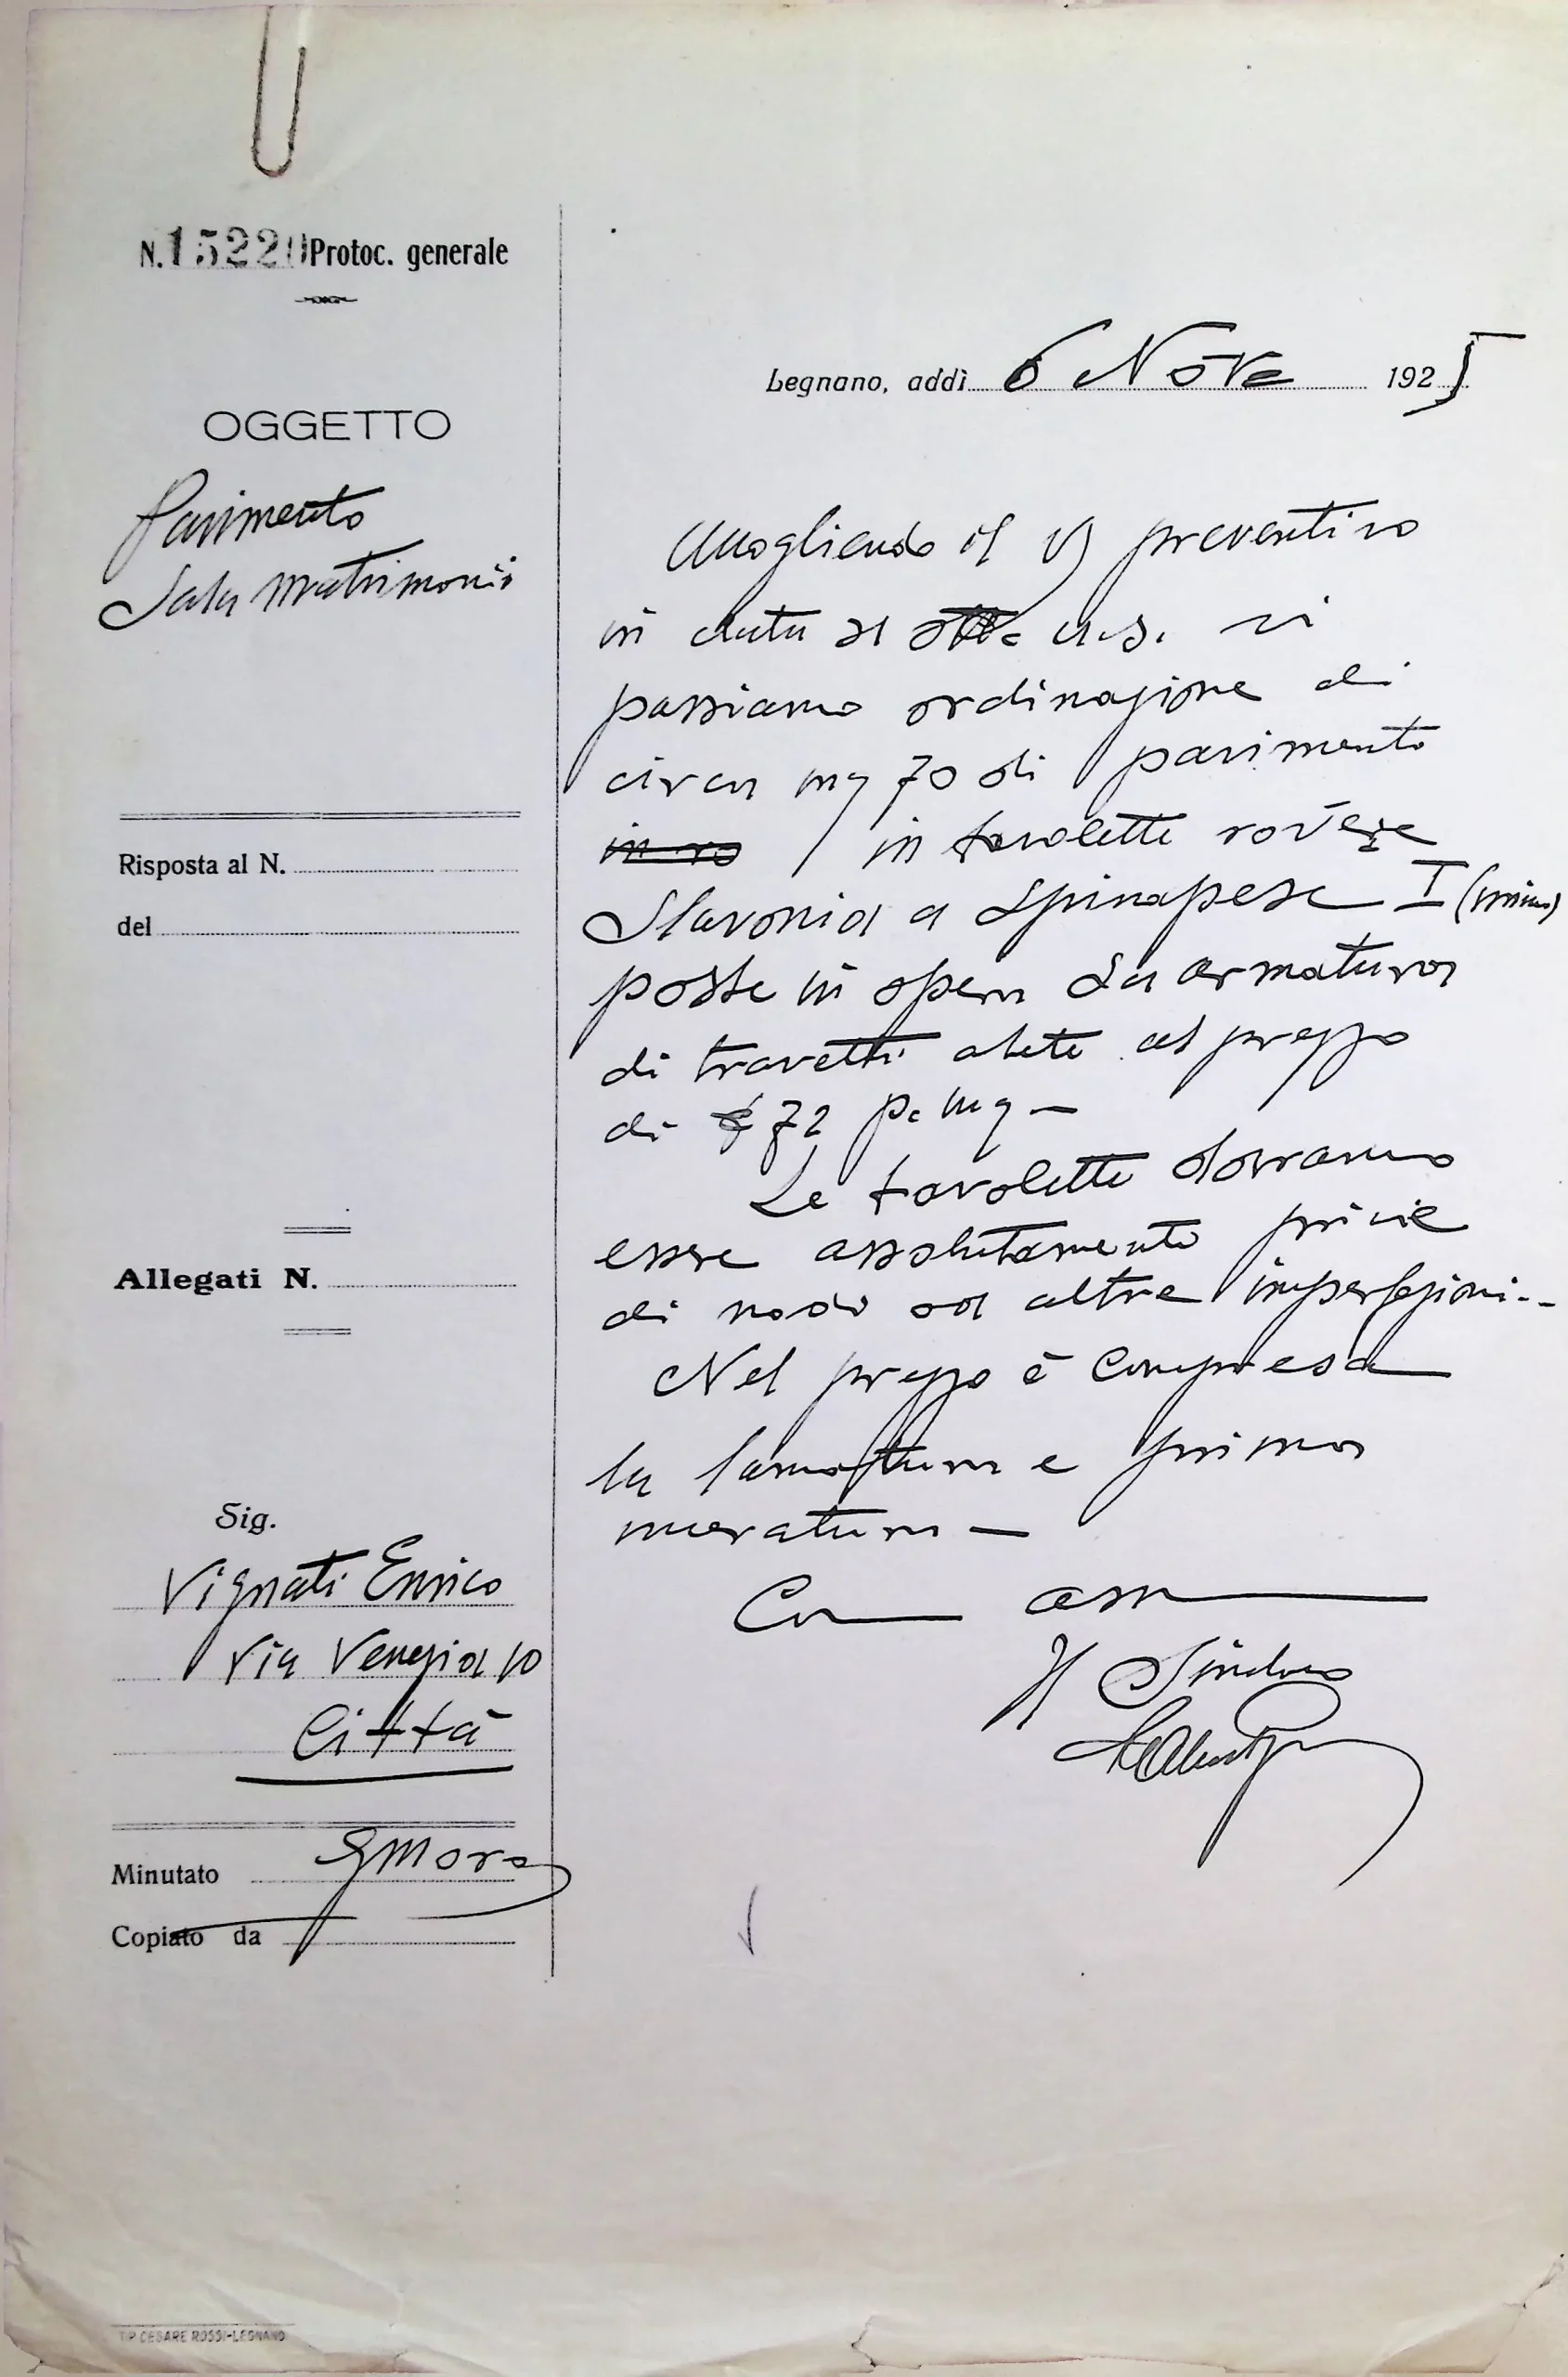 N. 15220 Protoc. generale
OGGETTO
Pavimento
Sala Matrimonii
Risposta al N.
del
Allegati N.
Sig.
Vignati Enrico
Via Venezia 10
Città
Minutato GMora
Copiato da
Legnano, addì 6 Nove 1925
Accogliendo il V/ preventivo
in data 31 Otte u.s. vi
passiamo ordinazione di
circa mq 70 di pavimento
in ro / in tavolette rovere
Slavonia a Spinapese I (prima)
poste in opera su armatura
di travetti abete al prezzo
di £ 72 p. mq —
Le tavolette dovranno
essere assolutamente prive
di nodi od altre imperfezioni --
Nel prezzo è compresa
la lamatura e prima
inceratura —
Con oss
Il Sindaco
TIP. CESARE ROSSI-LEGNANO